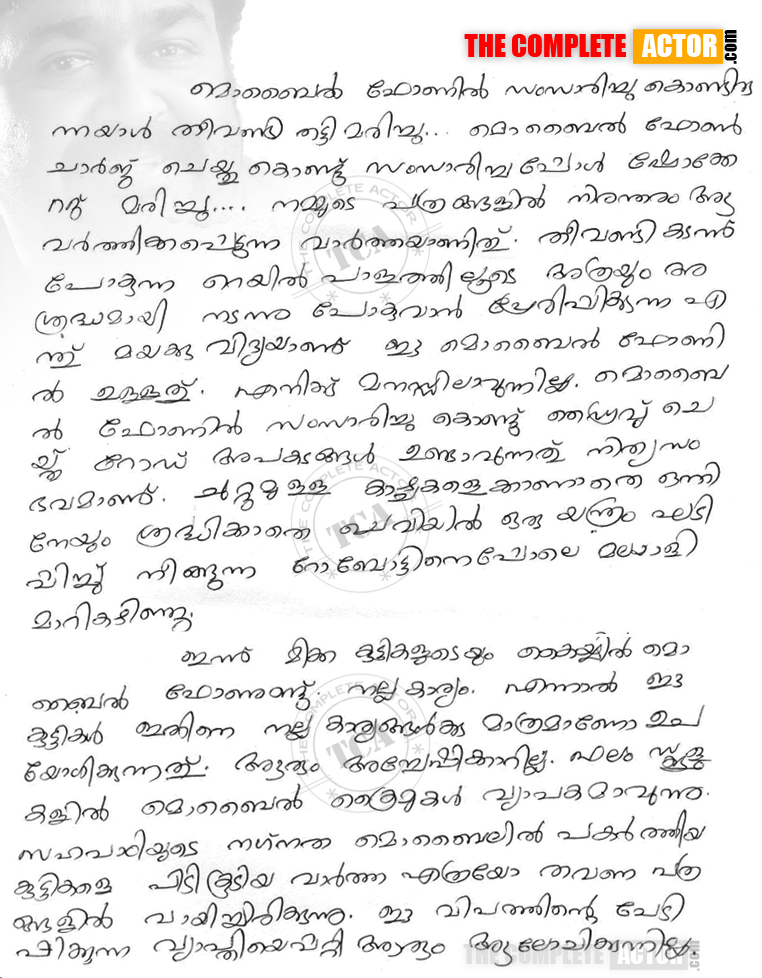 THE COMPLETE ACTOR.com
മൊബൈൽ ഫോണിൽ സംസാരിച്ചു കൊണ്ടിരു
ന്നയാൾ തീവണ്ടി തട്ടി മരിച്ചു... മൊബൈൽ ഫോൺ
ചാർജ്ജ് ചെയ്തു കൊണ്ട് സംസാരിച്ചപ്പോൾ ഷോക്കേ
റ്റ് മരിച്ചു.... നമ്മുടെ പത്രങ്ങളിൽ നിരന്തരം ആ
വർത്തിക്കപ്പെടുന്ന വാർത്തയാണിത്. തീവണ്ടി കടന്ന്
പോകുന്ന റെയിൽ പാളത്തിലൂടെ അത്രയും അ
ശ്രദ്ധമായി നടന്നു പോകുവാൻ പ്രേരിപ്പിക്കുന്ന എ
ന്ത് മയക്കു വിദ്യയാണ് ഈ മൊബൈൽ ഫോണി
ൽ ഉള്ളത്. എനിക്ക് മനസ്സിലാവുന്നില്ല. മൊബൈ
ൽ ഫോണിൽ സംസാരിച്ചു കൊണ്ട് ഡ്രൈവ് ചെ
യ്ത് റോഡ് അപകടങ്ങൾ ഉണ്ടാവുന്നത് നിത്യസം
ഭവമാണ്. ചുറ്റുമുള്ള കാഴ്ചകളെക്കാണാതെ ഒന്നി
നേയും ശ്രദ്ധിക്കാതെ ചെവിയിൽ ഒരു യന്ത്രം ഘടി
പ്പിച്ച് നീങ്ങുന്ന റോബോട്ടിനെപ്പോലെ മലയാളി
മാറികഴിഞ്ഞു.
ഇന്ന് മിക്ക കുട്ടികളുടെയും കൈയ്യിൽ മൊ
ബൈൽ ഫോണുണ്ട്. നല്ല കാര്യം. എന്നാൽ ഈ
കുട്ടികൾ ഇതിനെ നല്ല കാര്യങ്ങൾക്കു മാത്രമാണോ ഉപ
യോഗിക്കുന്നത്. ആരും അന്വേഷിക്കാറില്ല. ഫലം സ്കൂളു
കളിൽ മൊബൈൽ ക്രൈമുകൾ വ്യാപകമാവുന്നു.
സഹപാഠിയുടെ നഗ്നത മൊബൈലിൽ പകർത്തിയ
കുട്ടികളെ പിടികൂടിയ വാർത്ത എത്രയോ തവണ പത്ര
ങ്ങളിൽ വായിച്ചിരിക്കുന്നു. ഈ വിപത്തിന്റെ പേടി
പ്പിക്കുന്ന വ്യാപ്തിയെപ്പറ്റി ആരും ആലോചിക്കുന്നില്ല
THE COMPLETE ACTOR.com